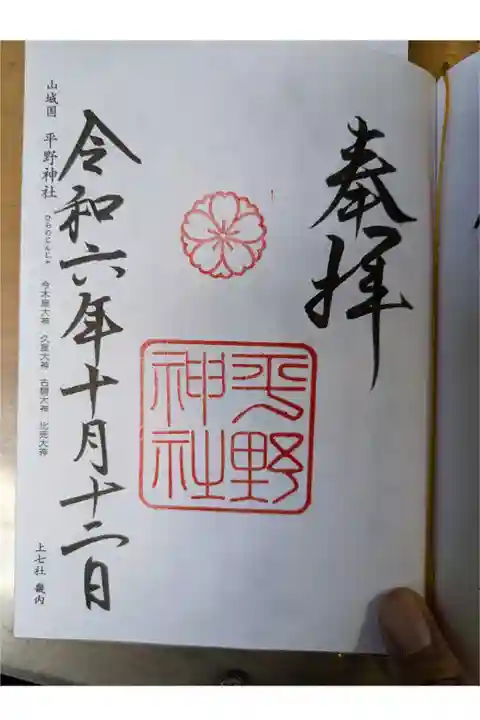 奉拝
平野
神社
令和六年十月十二日
山城国 平野神社
ひらのじんじゃ
今木皇大神 久度大神 古開大神 比売大神
上七社 畿内